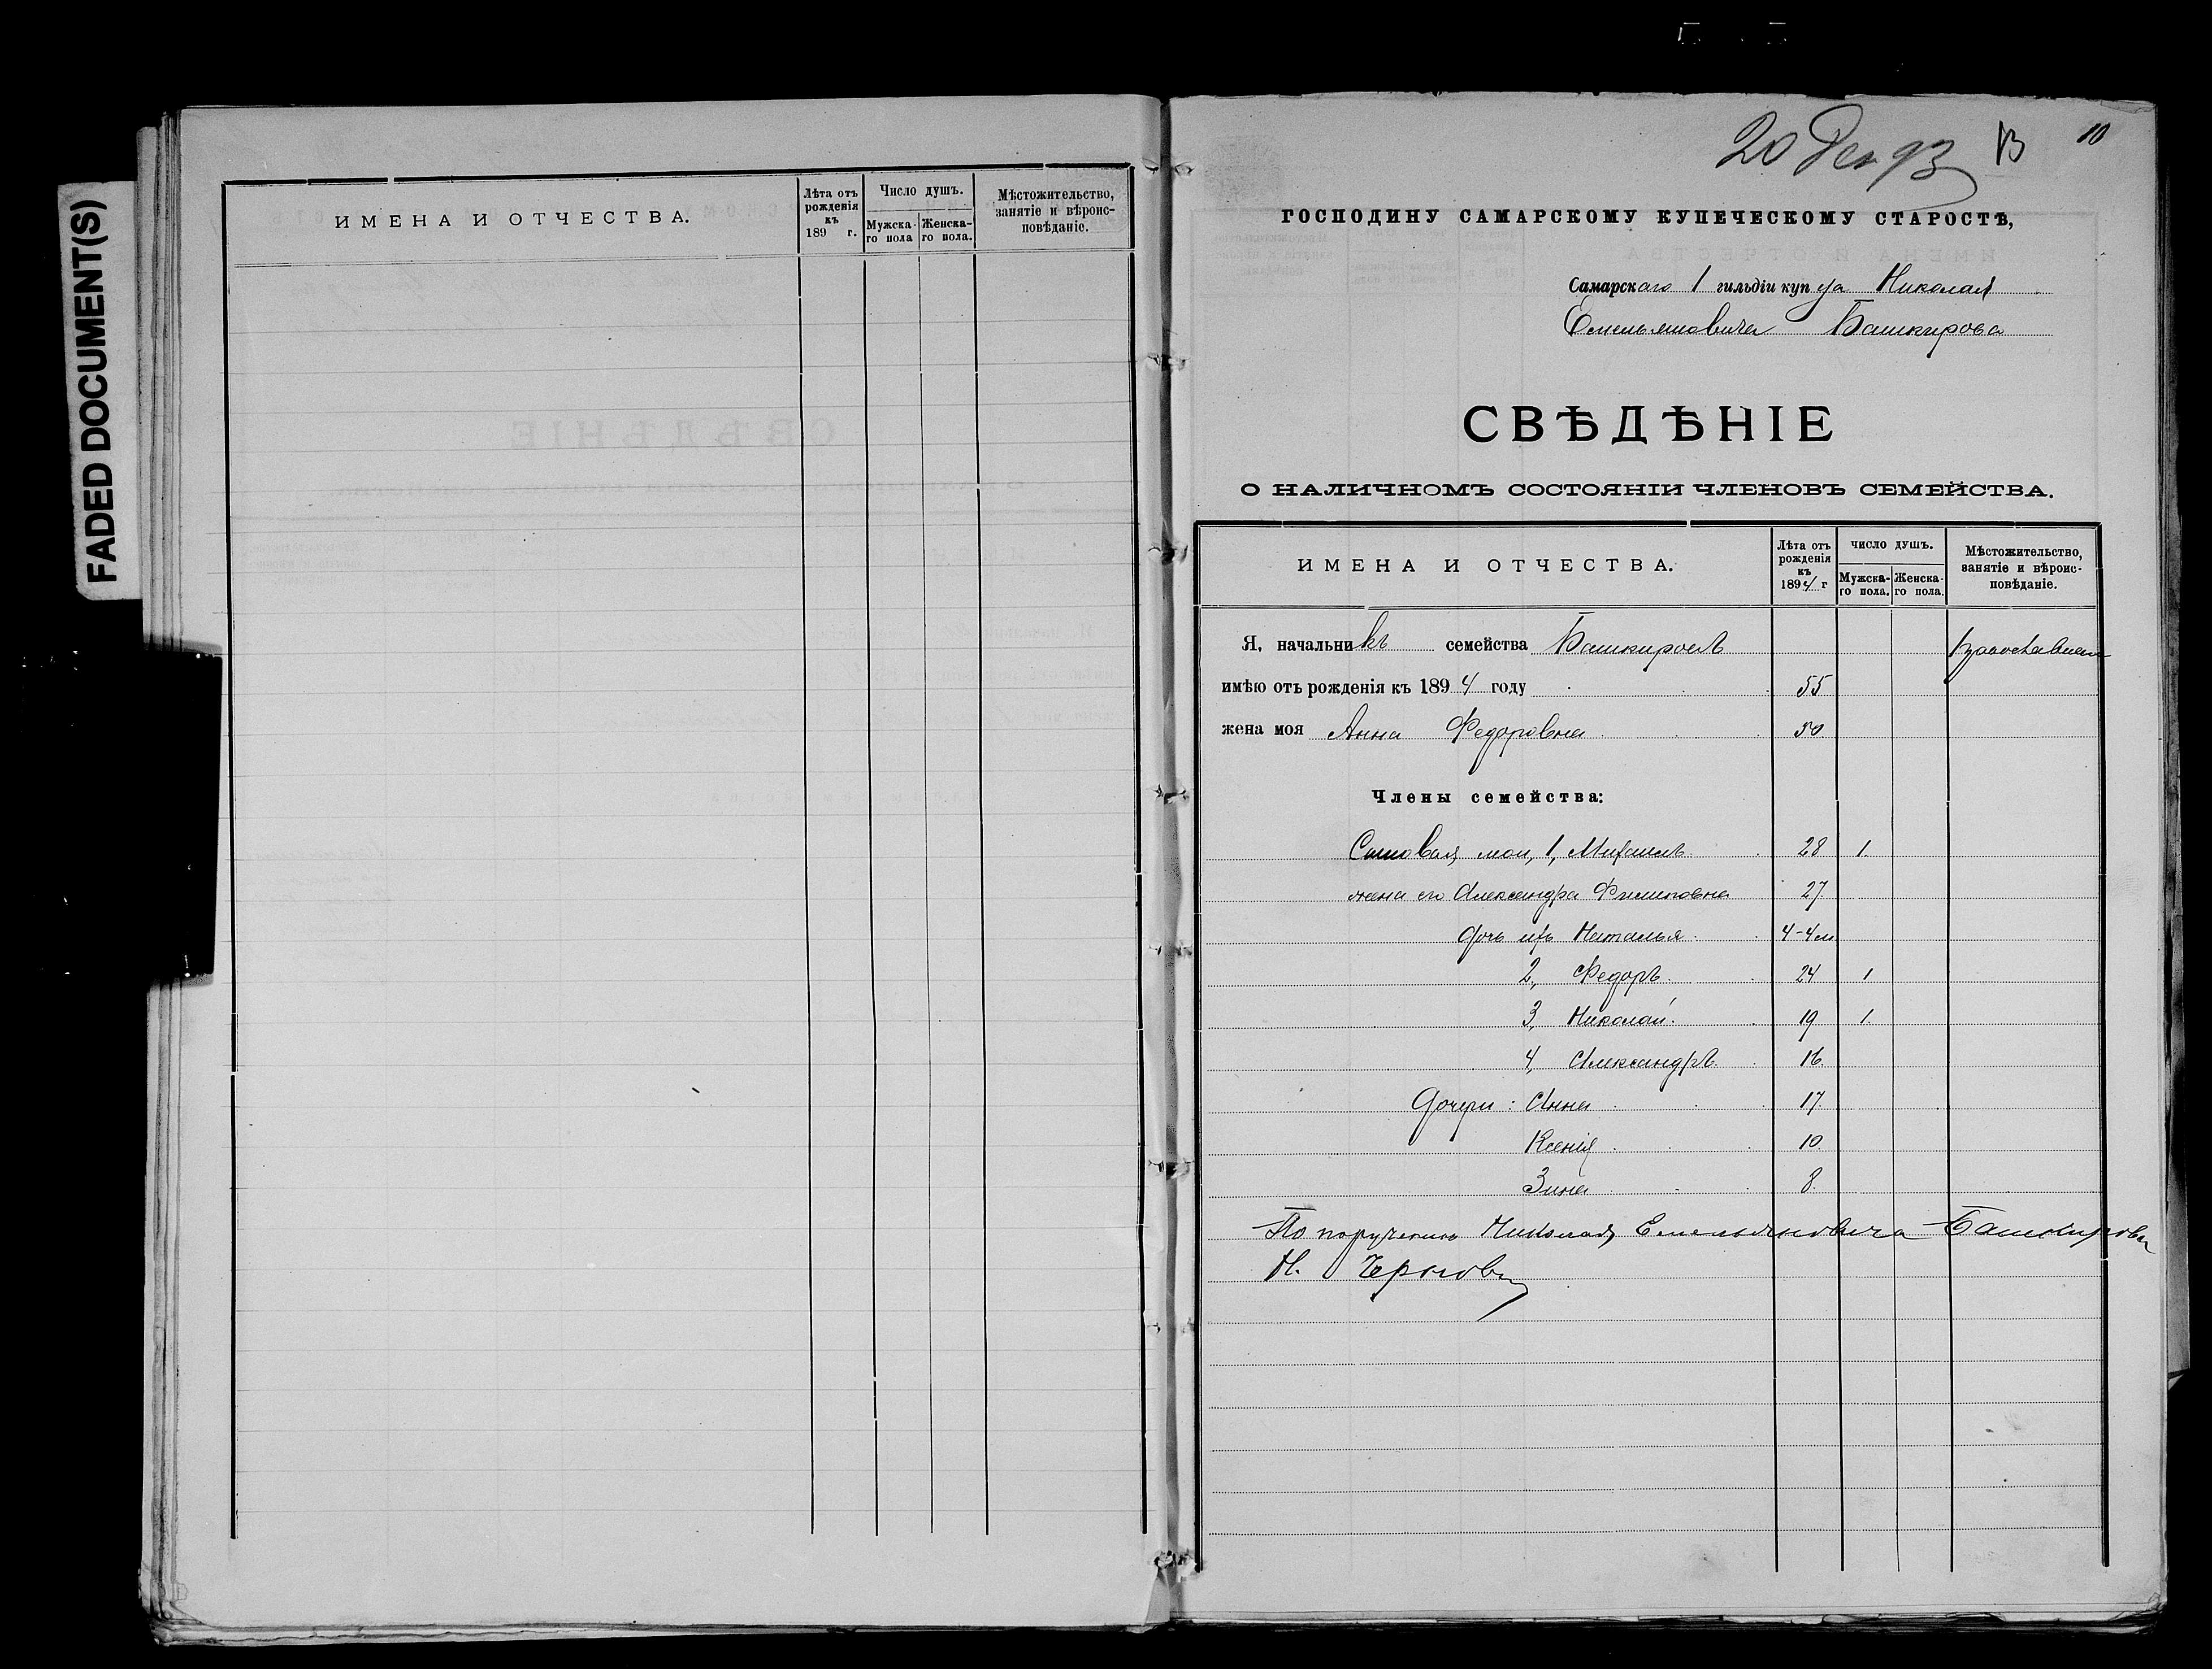 FADED DOCUMENT(S)
ИМЕНА И ОТЧЕСТВА.
Лѣта отъ рожденія къ 189 г.
Число душъ.
Мужска-го пола
Женска-го пола.
Мѣстожительство, занятіе и вѣроис-повѣданіе.
20 Дек 93
13
10
ГОСПОДИНУ САМАРСКОМУ КУПЕЧЕСКОМУ СТАРОСТѢ,
Самарскаго 1 гильдіи купца Николая
Емельяновича Башкирова
СВѢДѢНІЕ
О НАЛИЧНОМЪ СОСТОЯНІИ ЧЛЕНОВЪ СЕМЕЙСТВА.
ИМЕНА И ОТЧЕСТВА.
Лѣта отъ рожденія къ 1894 г
ЧИСЛО ДУШЪ.
Мужска-го пола.
Женска-го пола.
Мѣстожительство, занятіе и вѣроис-повѣданіе.
Я, начальникъ семейства Башкировъ
имѣю отъ рожденія къ 1894 году 55
жена моя Анна Федоровна 50
Члены семейства:
мои, 1, Михаилъ 28 1.
жена его Александра Филиповна 27
дочь ихъ Наталья 4-4м
2, Федоръ 24 1
3, Николай 19 1.
4, Александръ 16
Дочери: Анна 17
Ксенія 10
Зина 8
По порученію Николая Емельяновича Башкирова
Н.